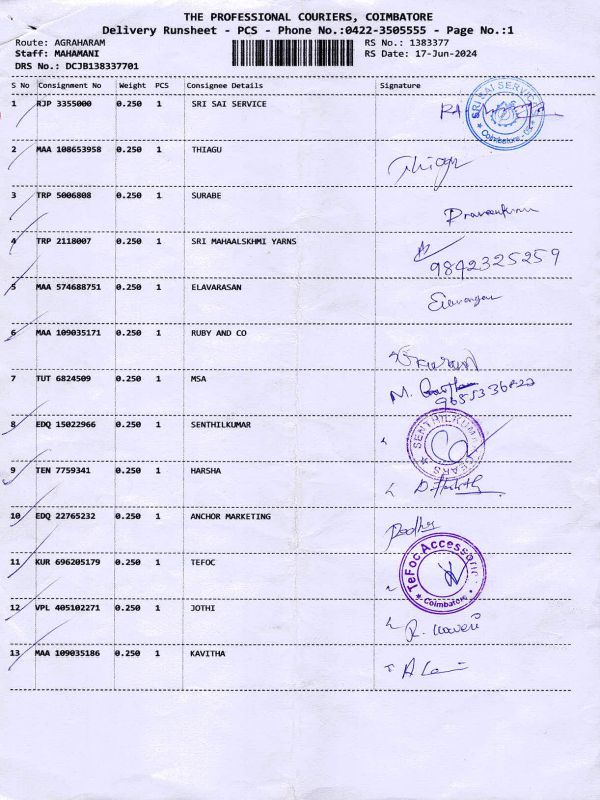 THE PROFESSIONAL COURIERS, COIMBATORE
Delivery Runsheet - PCS - Phone No.:0422-3505555 - Page No.:1
Route: AGRAHARAM RS No.: 1383377
Staff: MAHAMANI RS Date: 17-Jun-2024
DRS No.: DCJB138337701
S No Consignment No Weight PCS Consignee Details Signature
1 RJP 3355000 0.250 1 SRI SAI SERVICE
SRI SAI SERVICE
Coimbatore
2 MAA 108653958 0.250 1 THIAGU Thiagu
3 TRP 5006808 0.250 1 SURABE
4 TRP 2118007 0.250 1 SRI MAHAALSKHMI YARNS 9842325259
5 MAA 574688751 0.250 1 ELAVARASAN
6 MAA 109035171 0.250 1 RUBY AND CO
7 TUT 6824509 0.250 1 MSA M.
8 EDQ 15022966 0.250 1 SENTHILKUMAR
SENTHILKUMAR
9 TEN 7759341 0.250 1 HARSHA
10 EDQ 22765232 0.250 1 ANCHOR MARKETING
11 KUR 696205179 0.250 1 TEFOC
TeFoc Accessorie
Coimbatore
12 VPL 405102271 0.250 1 JOTHI
13 MAA 109035186 0.250 1 KAVITHA